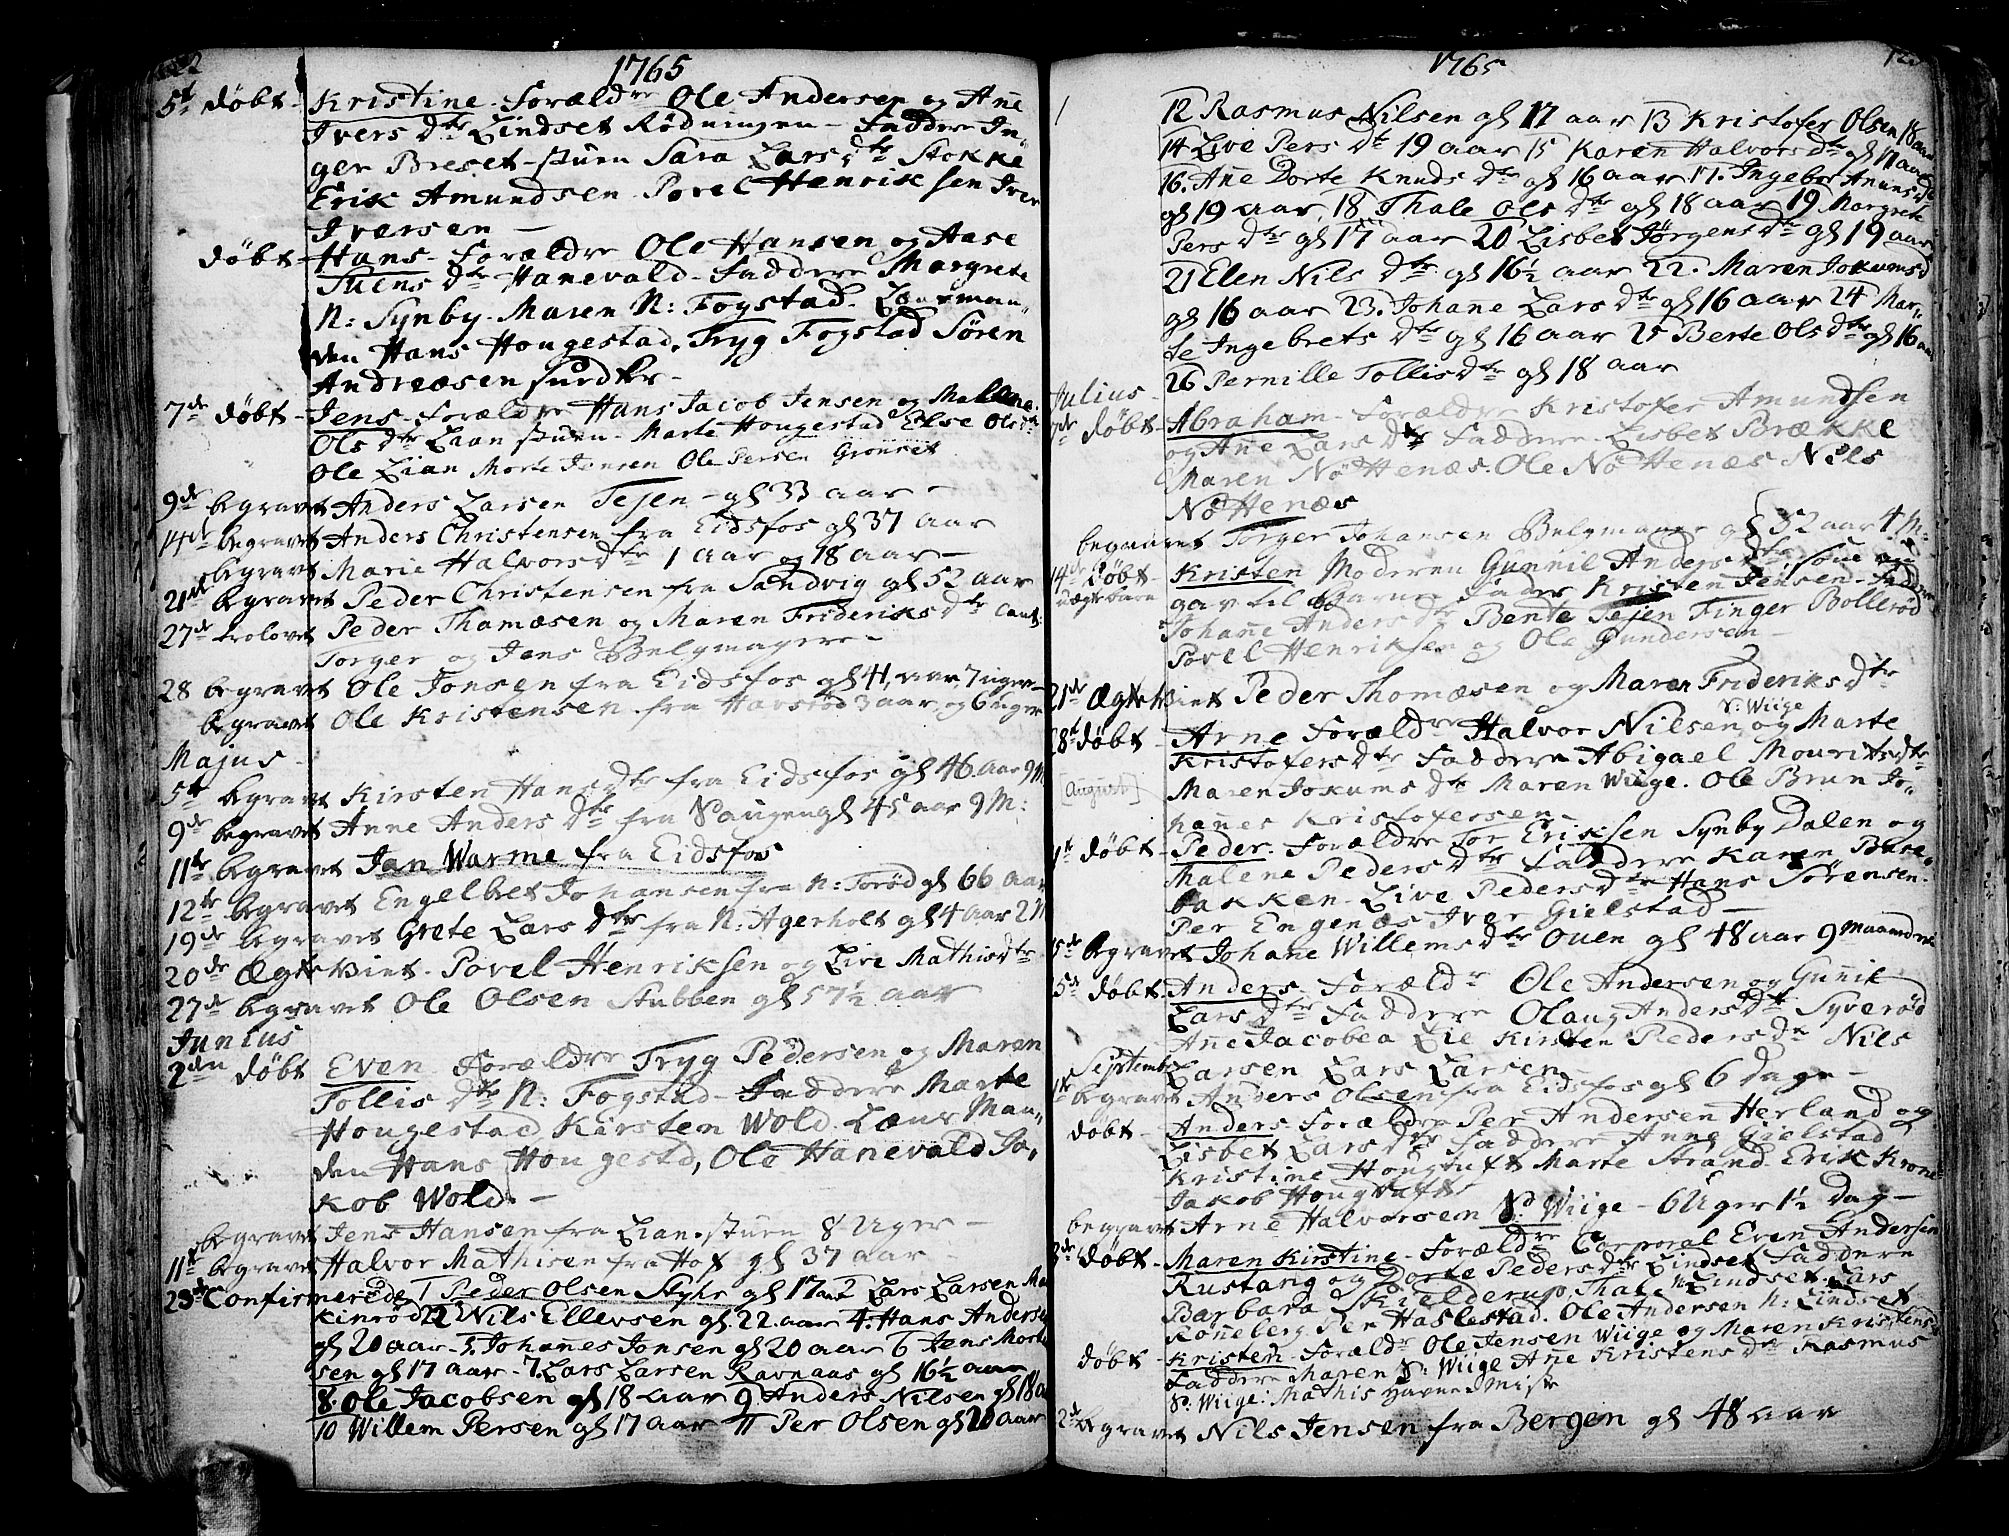 1765
5t døbt - Kristine - Forældre Ole Andersen og Añe
Ivers dtr Lindset Rødningen - Faddere In-
ger Breset-stuen Sara Lars dtr Stokke
Erik Amundsen Povel Henriksen Iver
Iversen -
døbt - Hans - Forældre Ole Hansen og Aase
Suens dtr Hanevald - Faddere Margrete
N: Synby. Maren N: Fogstad. Lænsman-
den Hans Hougestad. Tryg Fogstad Søren
Andreæsen
7de døbt - Jens - Forældre Hans Jacob Jensen og Malene
Ols dtr Liaan stuen - Marte Hougestad Else Ols dtr
Ole Lian Morte Jonsen Ole Persen Grønset
9de begravet Anders Larsen Tejen - gl 33 aar -
14de begravet Anders Christensen fra Eidsfos gl 37 aar
begravet Marie Halvors dtr 1 aar og 18 aar -
21de begravet Peder Christensen fra Sandvig gl 52 aar
27de trolovet Peder Thamæsen og Maren Frideriks dtr Caut:
Torger og Jens Belgmagere -
28 begravet Ole Jonsen fra Eidsfos gl 41 aar, 7 uger -
begravet Ole Kristensen fra Havstød 3 aar og 6 uger
Majus -
5te begravet Kirsten Hans dtr fra Eidsfos gl 46 aar 9 M
9de begravet Anne Anders dtr fra Haugen gl 45 aar 9 M:
11te begravet Jan Warme fra Eidsfos
12te begravet Engelbret Johansen fra N: Torød gl 66 aar
19de begravet Grete Lars dtr fra N: Agerholt gl 4 aar 2 M
20de Ægte viet - Povel Henriksen og Live Mathis dtr
27de begravet Ole Olsen Stubben gl 57½ aar
Junius
2den døbt Even Forældre Tryg Pedersen og Maren
Tollis dtr N: Fogstad - Faddere Marte
Hougestad Kirsten Wold. Læns Man-
den Hans Hougestd, Ole Hanevald Ja-
kob Wold. -
begravet Jens Hansen fra Lian-stuen 8 Uger -
11te begravet Halvor Mathisen fra Hof gl 37 aar -
23de Confirmerede 1 Peder Olsen Styhr gl 17 aar 2 Lars Larsen Ma
kinrød 22 3 Nils Ellevsen gl. 22 aar 4. Hans Anders
gl 20 aar - 5 Johañes Jonsen gl 20 aar 6 Jens Morte
sen gl 17 aar - 7. Lars Larsen Ravnaas gl 16½ aar
8. Ole Jacobsen gl 18 aar 9 Anders Nilsen gl 18 a
10 Willem Persen gl 17 aar 11 Per Olsen gl 20 aar
1765
12 Rasmus Nilsen gl 17 aar 13 Kristofer Olsen 18 aar
14 Live Pers dtr 19 aar 15 Karen Halvors dtr gl 17 aar
16. Añe Dorte Knuds dtr gl 16 aar 17. Ingebor Amuns dtr
gl 19 aar, 18 Thale Ols dtr gl 18 aar 19 Margrete
Pers dtr gl 17 aar 20 Lisbet Jørgens dtr gl 19 aar
21 Elen Nils dtr gl 16½ aar 22. Maren Jokums d
gl 16 aar 23. Johane Lars dtr gl 16 aar 24 Mar-
te Ingebrets dtr gl 16 aar 25 Berte Ols dtr gl 16 aar
26 Pernille Tollis dtr gl 18 aar
Julius -
7de døbt - Abraham - Forældre Kristofer Amundsen
og Añe Lars dtr Faddere Lisbet Brække
Maren Nøttenæs. Ole Nøttenæs Nils
Nøttenæs
begravet Torger Johansen Belgmager gl 52 aar 4 M:
14de døbt - Kristen Moderen Guñil Anders dtr som
uægte barn gav til Barne Fader Kristen Jensen - Faddere
Johañe Anders dtr Bente Tejen Finger Bollerød
Povel Henriksen og Ole Gundersen -
21de Ægte viet Peder Thomæsen og Maren Frideriks dtr
28t døbt - Arne Forældre Halvor Nilsen N: Wiige og Marte
Kristofers dtr Faddere Abigael Mourits dtr
[August] Maren Jokums dtr Maren Wiige. Ole Brun Jo-
hañes Kristofersen -
døbt - Peder. Forældre Tor Eriksen Synby Dalen og
Malene Peders dtr Faddere Karen Braa-
bakken - Live Peders dtr Hans Sørensen
Per Engenæs Iver Gielstad -
begravet Johane Willems dtr Ouen gl 48 aar 9 maaneder
døbt - Anders - Forældr Ole Andersen og Guñil
Lars dtr Faddere Olaug Anders dtr Syverød
Añe Jacobea Lie Kirsten Peders dtr Nils
Septembr Larsen Lars Larsen -
begravet Anders Olsen fra Eidsfos gl 6 Dage -
døbt - Anders Forældre Per Andersen Herland og
Lisbet Lars dtr Faddere Anne Gielstad
Kristine Hougtuft Marte Strand. Erik Krone
Jakob Hougtuft
begravet Arne Halvorsen N: Wiige - 6 Uger 1½ Dag -
døbt - Maren Kirstine - Forældre Corporal Even Andersen
Rustang og Dorte Peders dtr Lindset Faddere
Barbara Skielderup, Thale N: Lindset. Lars
Røñeberg Per Haslestad. Ole Andersen N: Lindset
døbt - Kristen Forældr Ole Jensen Wiige og Maren Kristens dtr
Faddere Maren N: Wiige Añe Kristens dtr Rasmus
N: Wiige: Mathis
begravet Nils Jensen fra Bergen gl 48 aar